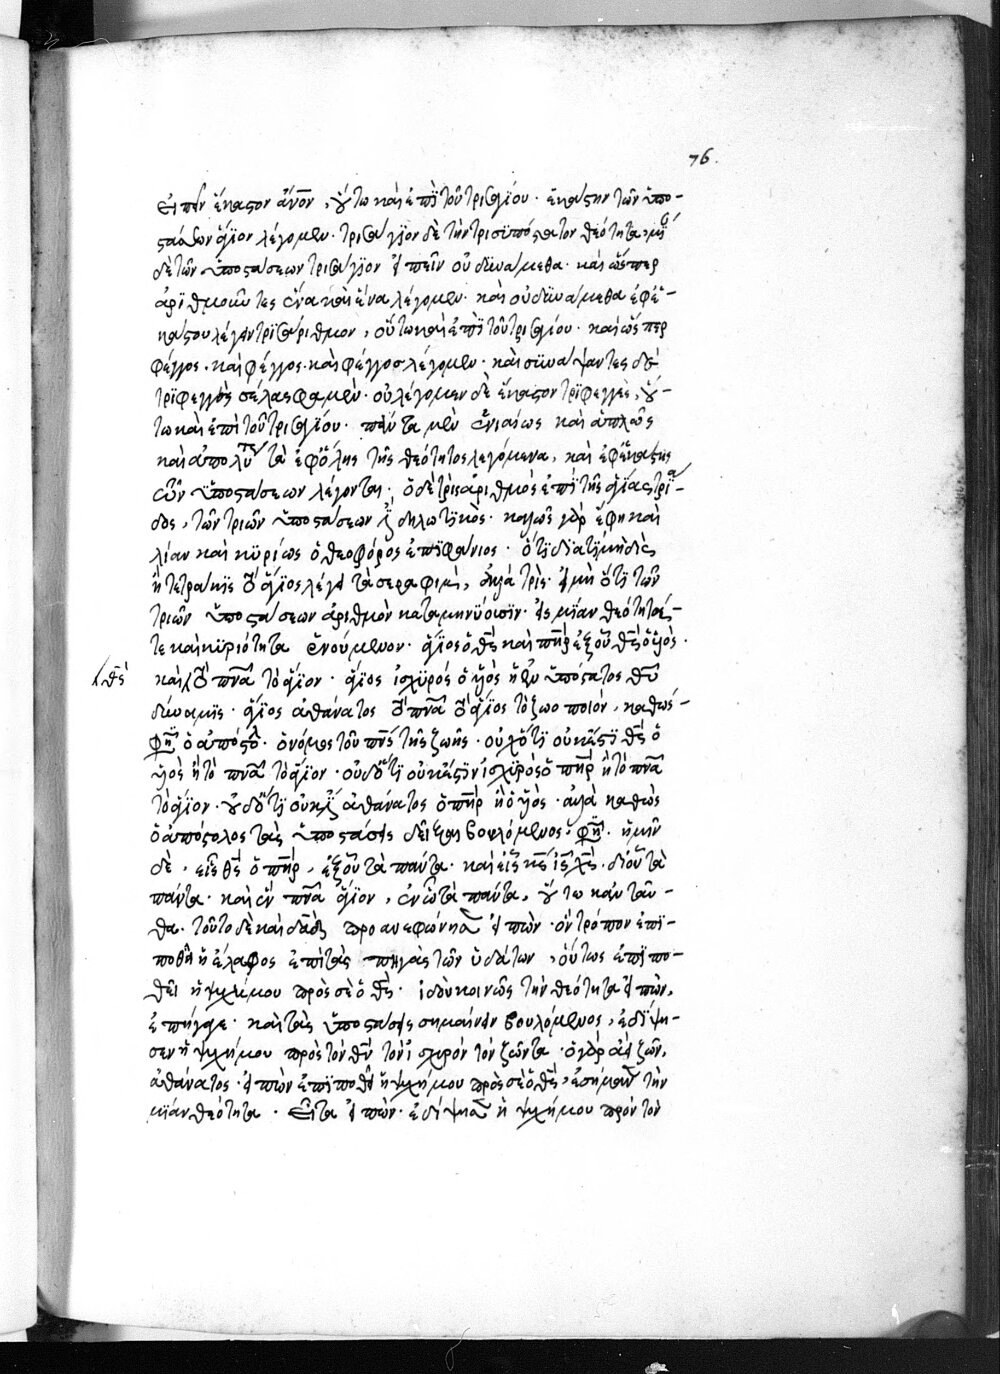 76.
εἰπεῖν ἕκαστον ἄνον, οὕτω καὶ ἐπὶ τοῦ τρισαγίου· ἑκάστην τῶν ὑπο-
στάσεων ἅγιον λέγομεν· τρισάγιον δὲ τὴν τρισυπόστατον θεότητα, μί
δὲ τῶν ὑποστάσεων τρισάγιον εἰπεῖν οὐ δυνάμεθα· καὶ ὥσπερ
ἀριθμοῦντες ἕνα καὶ ἕνα λέγομεν· καὶ οὐ δυνάμεθα ἐφ' ἑ-
κάστου λέγειν τρισάριθμον, οὕτω καὶ ἐπὶ τοῦ τρισαγίου· καὶ ὥσπερ
φέγγος· καὶ φέγγος· καὶ φέγγος λέγομεν· καὶ συνάψαντες δὲ
τριφεγγὲς σέλας φαμὲν· οὐ λέγομεν δὲ ἕκαστον τριφεγγὲς, οὕ-
τω καὶ ἐπὶ τοῦ τρισαγίου· πάντα μὲν ἑνιαίως καὶ ἁπλῶς
καὶ ἀπολύτως τὰ ἐφ' ὅλης τῆς θεότητος λεγόμενα, καὶ ἐφ' ἑκάστης
τῶν ὑποστάσεων λέγονται· ὁ δὲ τρὶς ἀριθμὸς ἐπὶ τῆς ἁγίας τριά-
δος, τῶν τριῶν ὑποστάσεών ἐστι δηλωτικὸς· καλῶς γὰρ ἔφη καὶ
λίαν καὶ κυρίως ὁ θεοφόρος ἐπιφάνιος· ὅτι διατί μὴ δὶς
ἢ τετράκις τὸ ἅγιος λέγει τὰ σεραφὶμ, ἀλλὰ τρὶς· εἰ μὴ ὅτι τῶν
τριῶν ὑποστάσεων ἀριθμὸν καταμηνύουσιν· εἰς μίαν θεότητά
τε καὶ κυριότητα ἑνούμενον· ἅγιος ὁ θς καὶ πηρ ἐξ οὗ θς ὁ υἱὸς·
θς καὶ τὸ πνα τὸ ἅγιον· ἅγιος ἰσχυρός ὁ υἱὸς ἡ ἐνυπόστατος θυ
δύναμις· ἅγιος ἀθάνατος τὸ πνα τὸ ἅγιος τὸ ζωοποιόν, καθώς
φη ὁ ἀπόστολ· ὁ νόμος τοῦ πνς τῆς ζωῆς· οὐχ ὅτι οὐκ ἔστι θς ὁ
υἱὸς ἢ τὸ πνα τὸ ἅγιον· οὐδ' ὅτι οὐκ ἔστιν ἰσχυρὸς ὁ πηρ ἢ τὸ πνα
τὸ ἅγιον· οὐδ' ὅτι οὐκ ἔστι ἀθάνατος ὁ πηρ ἢ ὁ υἱὸς· ἀλλὰ καθὼς
ὁ ἀπόστολος τὰς ὑποστάσεις δεῖξαι βουλόμενος· φη· ἡμῖν
δὲ, εἷς θς ὁ πηρ, ἐξ οὗ τὰ πάντα· καὶ εἷς κς ις χς· δι' οὗ τὰ
πάντα· καὶ ἓν πνα ἅγιον, ἐν ᾧ τὰ πάντα, οὕτω κἀνταῦ-
θα· τοῦτο δὲ καὶ δαδ προανεφώνησε εἰπών· ὃν τρόπον ἐπι-
ποθεῖ ἡ ἔλαφος ἐπὶ τὰς πηγὰς τῶν ὑδάτων, οὕτως ἐπιπο-
θεῖ ἡ ψυχή μου πρὸς σὲ ὁ θς· ἰδοὺ κοινῶς τὴν θεότητα εἰπών,
ἐπήγαγε· καὶ τὰς ὑποστάσεις σημαίνειν βουλόμενος, ἐδίψη-
σεν ἡ ψυχή μου πρὸς τὸν θν τὸν ἰσχυρόν τὸν ζῶντα· ὁ γὰρ ἀεὶ ζῶν,
ἀθάνατος· εἰπὼν ἐπιποθεῖ ἡ ψυχή μου πρὸς σὲ ὁ θς, ἐσήμανε τὴν
μίαν θεότητα· εἶτα εἰπών· ἐδίψησε ἡ ψυχή μου πρὸν τὸν